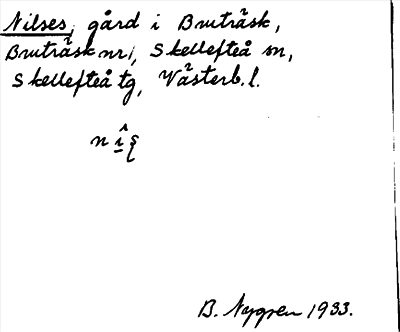 Nilses, gård i Bruträsk,
Bruträsk nr 1, Skellefteå sn,
Skellefteå tg, Västerb. l.
B. Nygren 1933.